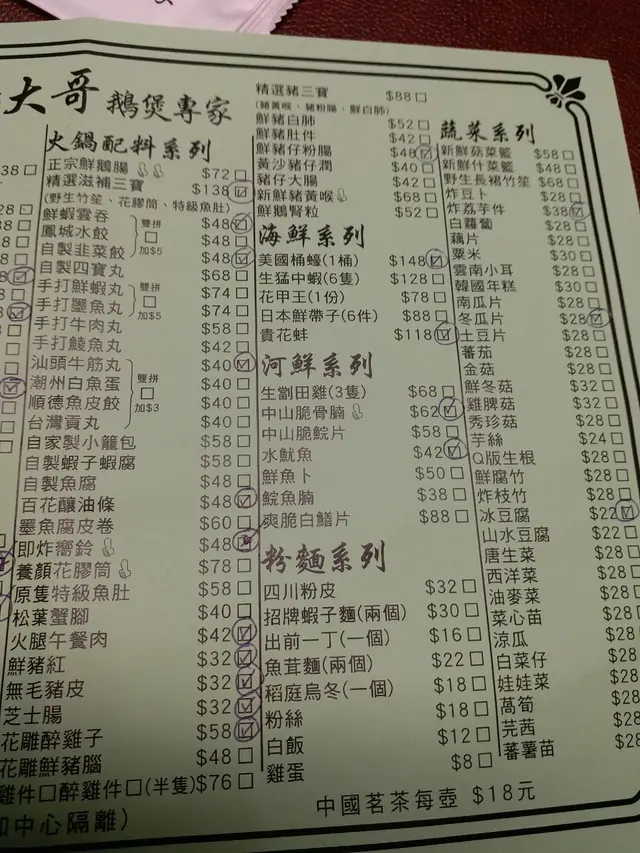 大哥 鵝煲專家
火鍋配料系列
正宗鮮鵝腸 $72
精選滋補三寶 $138
(野生竹笙、花膠筒、特級魚肚)
鮮蝦雲吞 $48
鳳城水餃 $48
自製韭菜餃 $48
雙拼 加$5
自製四寶丸 $68
手打鮮蝦丸 $74
手打墨魚丸 $74
雙拼 加$5
手打牛肉丸 $58
手打鯪魚丸 $42
汕頭牛筋丸 $40
潮州白魚蛋 $40
順德魚皮餃 $40
台灣貢丸 $40
雙拼 加$3
自家製小籠包 $58
自製蝦子蝦腐 $58
自製魚腐 $48
百花釀油條 $48
墨魚腐皮卷 $60
即炸嚮鈴 $48
養顏花膠筒 $78
原隻特級魚肚 $58
松葉蟹腳 $40
火腿午餐肉 $42
鮮豬紅 $32
無毛豬皮 $32
芝士腸 $32
花雕醉雞子 $58
花雕鮮豬腦 $48
雞件□醉雞件□(半隻)$76
中心隔離)
精選豬三寶 $88
(豬黃喉、豬粉腸、鮮白肺)
鮮豬白肺 $52
鮮豬肚件 $42
鮮豬仔粉腸 $48
黃沙豬仔潤 $40
豬仔大腸 $42
新鮮豬黃喉 $68
鮮鵝腎粒 $52
海鮮系列
美國桶蠔(1桶) $148
生猛中蝦(6隻) $128
花甲王(1份) $78
日本鮮帶子(6件) $88
貴花蚌 $118
河鮮系列
生劏田雞(3隻) $68
中山脆骨腩 $62
中山脆鯇片 $58
水魷魚 $42
鮮魚卜 $50
鯇魚腩 $38
爽脆白鱔片 $88
粉麵系列
四川粉皮 $32
招牌蝦子麵(兩個) $30
出前一丁(一個) $16
魚茸麵(兩個) $22
稻庭烏冬(一個) $18
粉絲 $18
白飯 $12
雞蛋 $8
蔬菜系列
新鮮菇菜籃 $58
新鮮什菜籃 $48
野生長裙竹笙 $68
炸豆卜 $28
炸荔芋件 $38
白蘿蔔 $28
藕片 $28
粟米 $30
雲南小耳 $28
韓國年糕 $30
南瓜片 $28
冬瓜片 $28
土豆片 $28
番茄 $28
金菇 $28
鮮冬菇 $32
雞脾菇 $32
秀珍菇 $28
芋絲 $24
Q版生根 $28
鮮腐竹 $28
炸枝竹 $28
冰豆腐 $22
山水豆腐 $22
唐生菜 $28
西洋菜 $28
油麥菜 $28
菜心苗 $28
涼瓜 $28
白菜仔 $28
娃娃菜 $28
萵筍 $28
芫茜 $28
蕃薯苗 $28
中國茗茶每壺 $18元